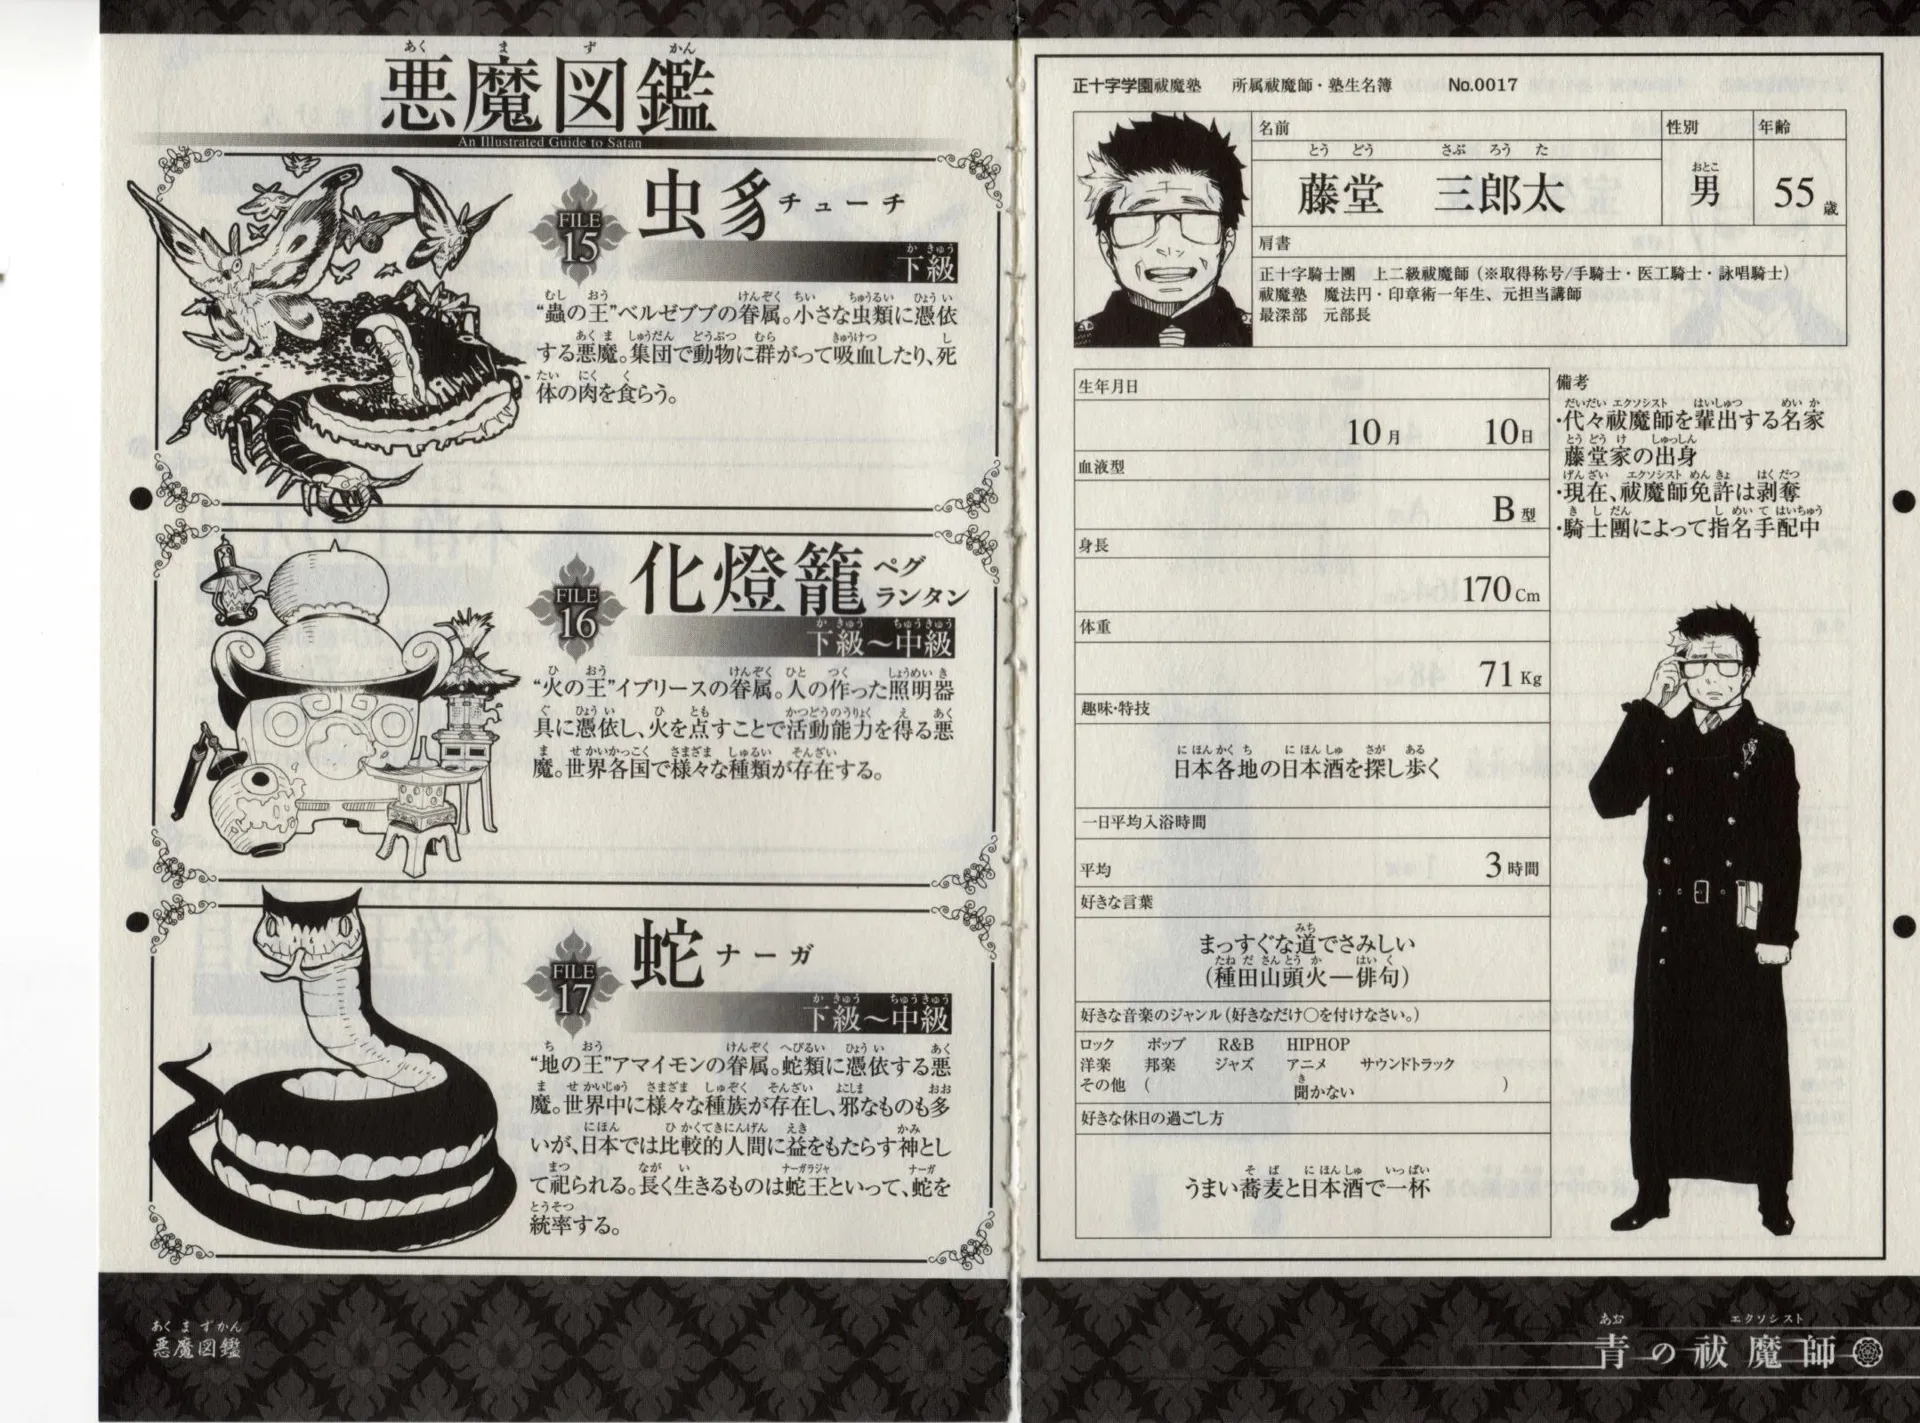 悪魔図鑑
An Illustrated Guide to Satan
FILE 15
虫豸 チューチ
下級
“蟲の王”ベルゼブブの眷属。小さな虫類に憑依
する悪魔。集団で動物に群がって吸血したり、死
体の肉を食らう。
FILE 16
化燈籠 ペグランタン
下級〜中級
“火の王”イブリースの眷属。人の作った照明器
具に憑依し、火を点すことで活動能力を得る悪
魔。世界各国で様々な種類が存在する。
FILE 17
蛇 ナーガ
下級〜中級
“地の王”アマイモンの眷属。蛇類に憑依する悪
魔。世界中に様々な種族が存在し、邪なものも多
いが、日本では比較的人間に益をもたらす神とし
て祀られる。長く生きるものは蛇王といって、蛇を
統率する。
悪魔図鑑
正十字学園祓魔塾 所属祓魔師・塾生名簿 No.0017
名前
とう どう さぶ ろう た
藤堂 三郎太
性別
男
年齢
55歳
肩書
正十字騎士團 上二級祓魔師（※取得称号/手騎士・医工騎士・詠唱騎士）
祓魔塾 魔法円・印章術一年生、元担当講師
最深部 元部長
生年月日
10月 10日
血液型
B型
身長
170Cm
体重
71Kg
趣味・特技
日本各地の日本酒を探し歩く
一日平均入浴時間
平均 3時間
好きな言葉
まっすぐな道でさみしい
（種田山頭火―俳句）
好きな音楽のジャンル（好きなだけ○を付けなさい。）
ロック ポップ R&B HIPHOP
洋楽 邦楽 ジャズ アニメ サウンドトラック
その他（ 聞かない ）
好きな休日の過ごし方
うまい蕎麦と日本酒で一杯
備考
・代々祓魔師を輩出する名家
藤堂家の出身
・現在、祓魔師免許は剥奪
・騎士團によって指名手配中
青の祓魔師